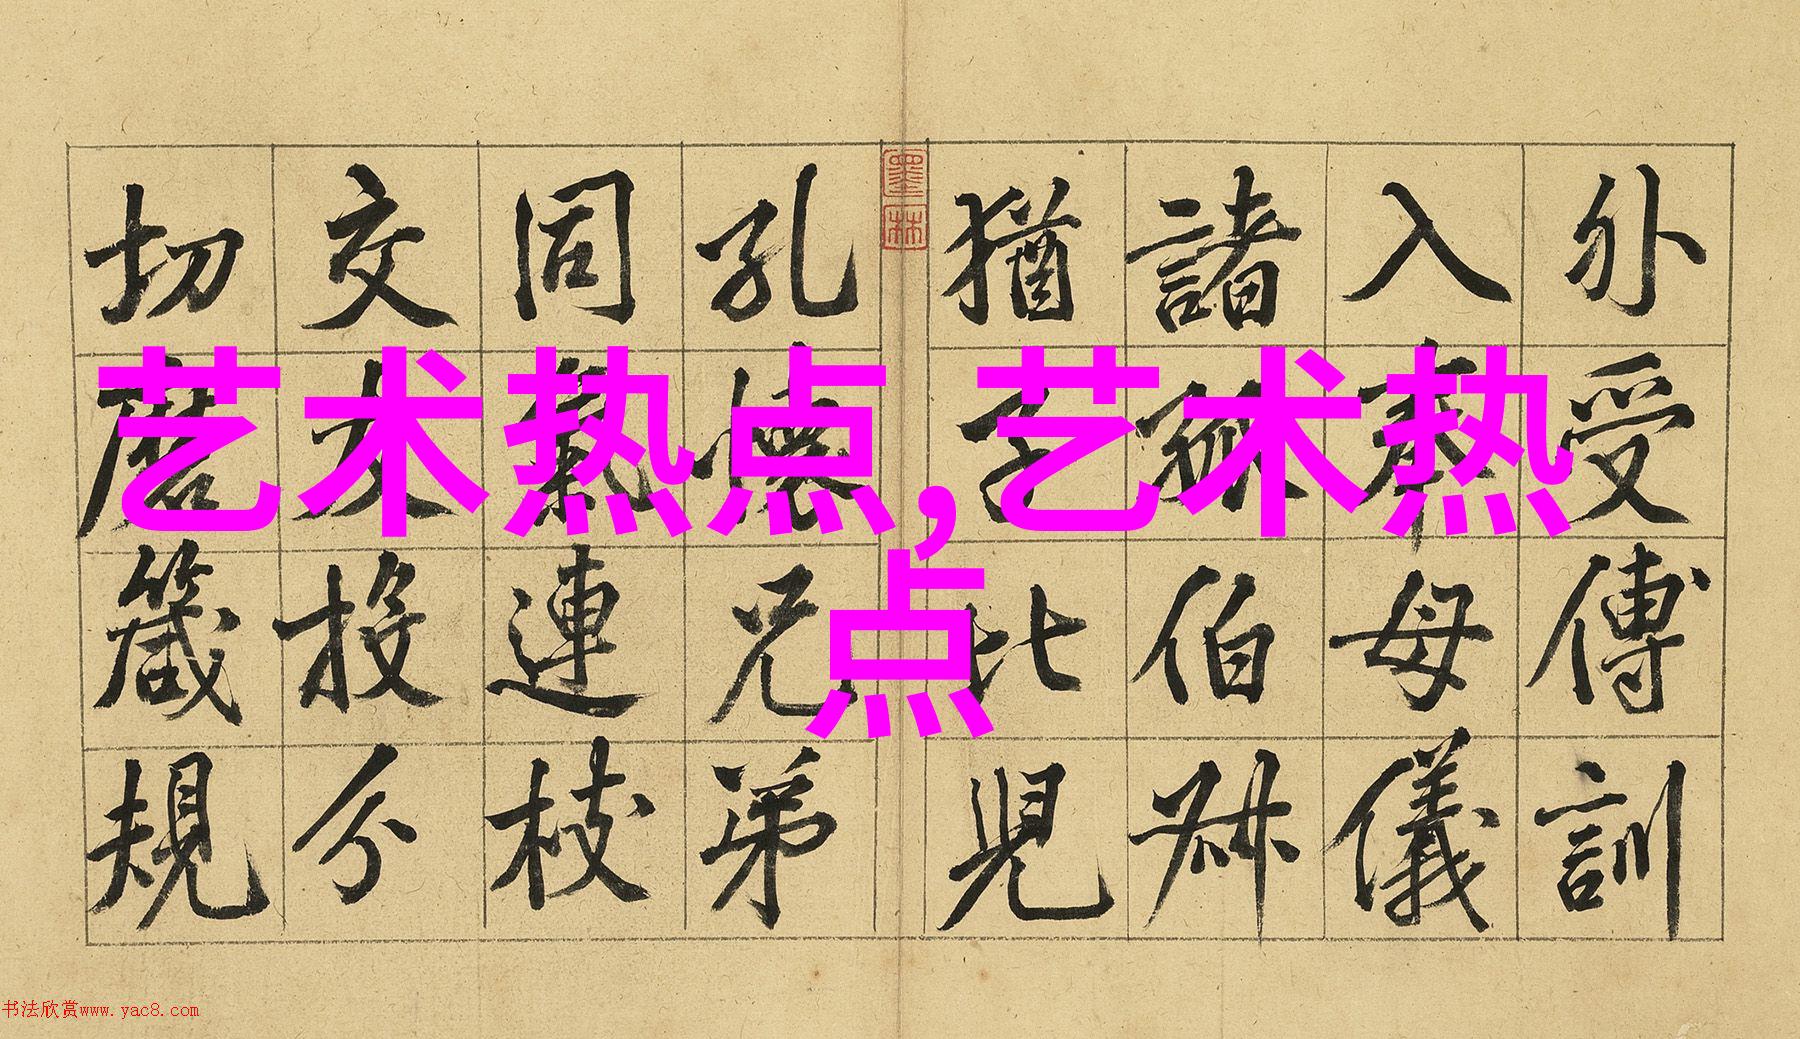 外受傅訓
入奉母儀
諸伯叔
猶子比兒
孔懷兄弟
同氣連枝
交友投分
切磨箴規
墨林
艺术热点,艺术热
点
书法欣赏www.yac8.com